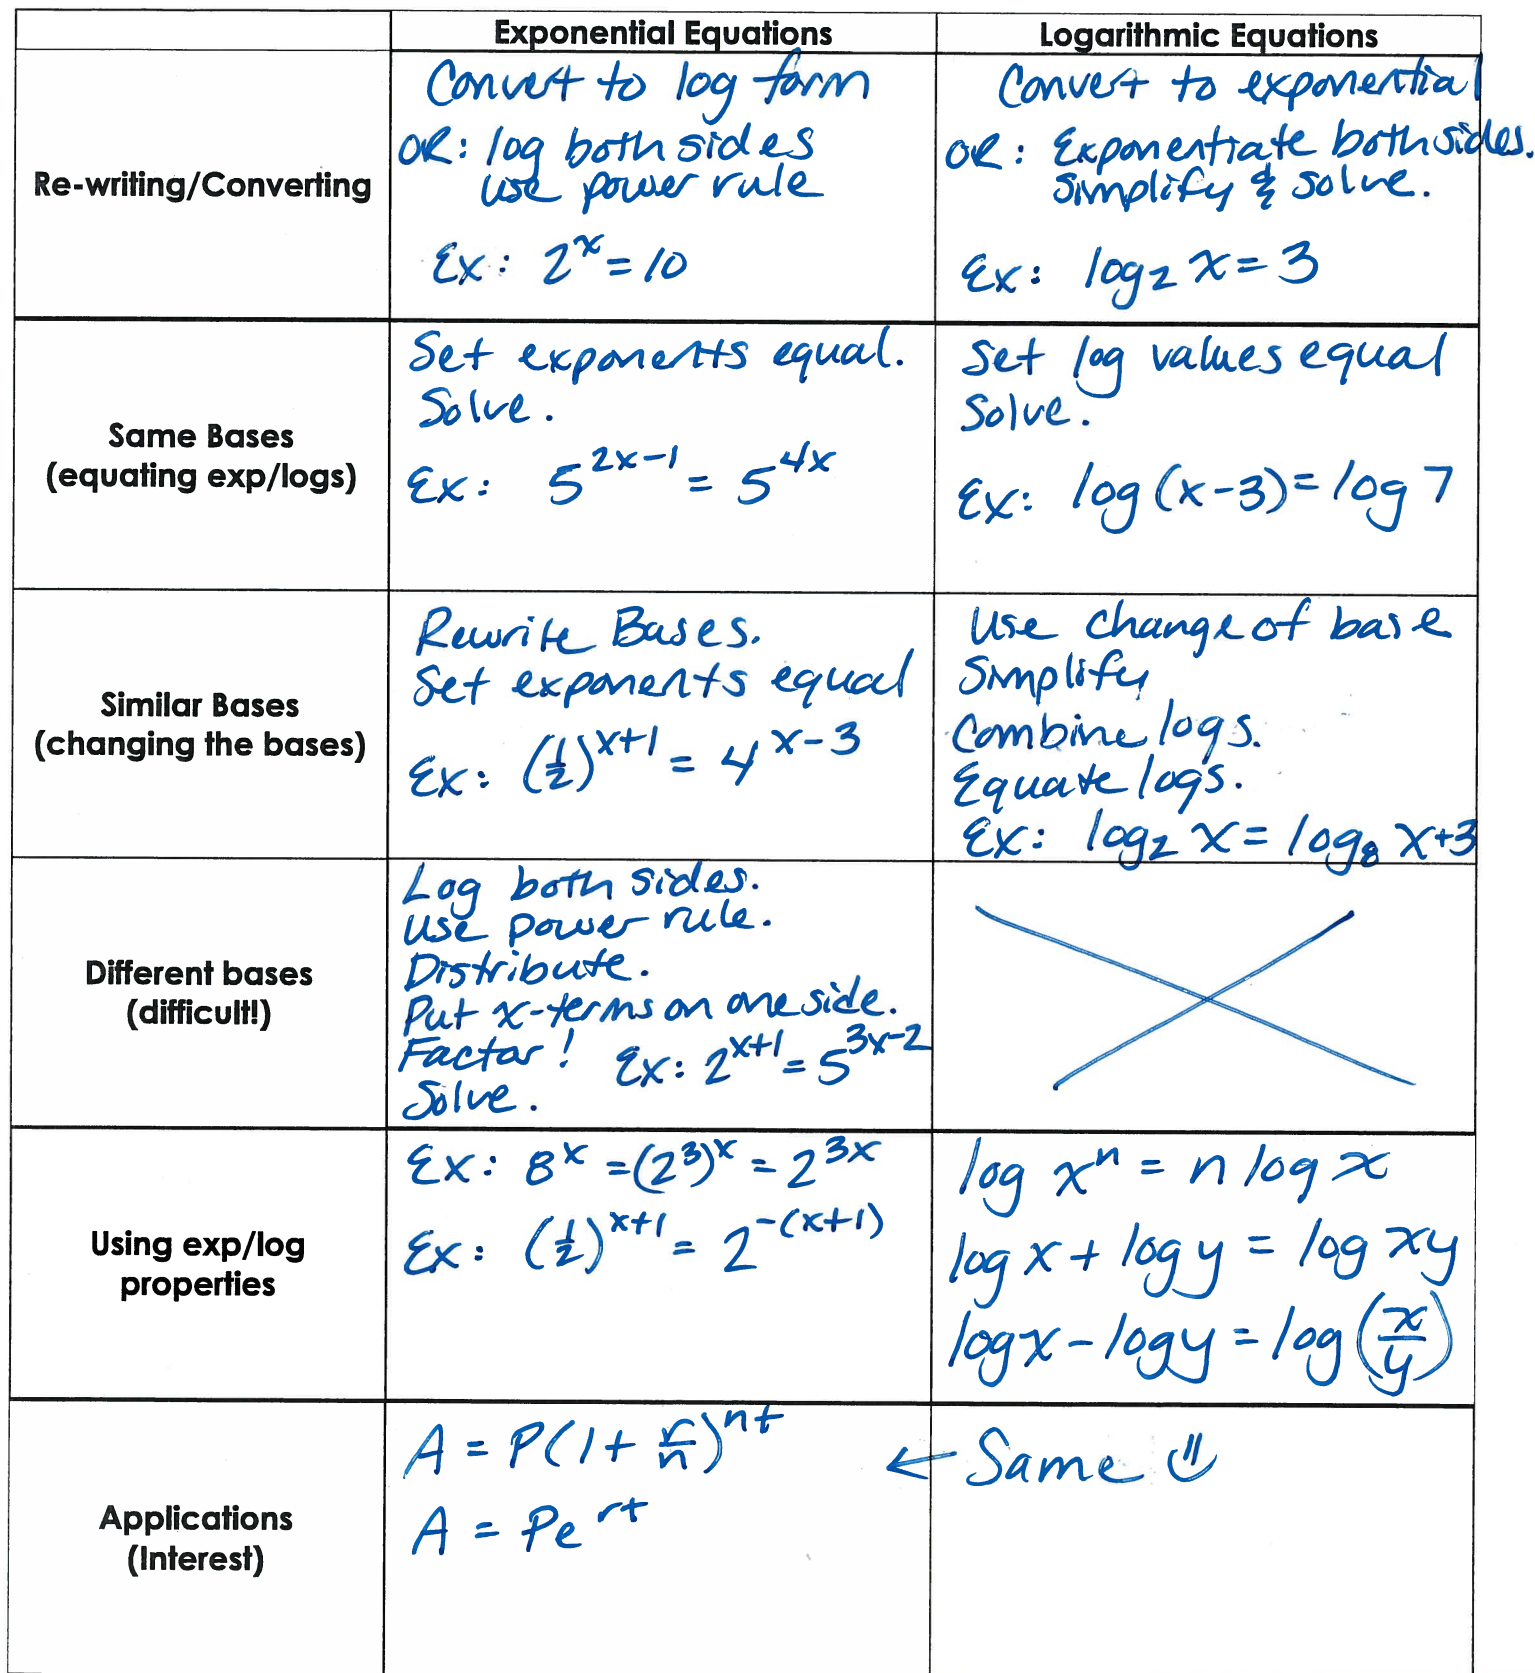 Exponential Equations
Logarithmic Equations
Re-writing/Converting
Convert to log form
OR: log both sides
use power rule
Ex: 2^x = 10
Convert to exponential
OR: Exponentiate both sides.
Simplify & solve.
Ex: log₂ x = 3
Same Bases
(equating exp/logs)
Set exponents equal.
Solve.
Ex: 5^(2x-1) = 5^(4x)
Set log values equal
Solve.
Ex: log (x-3) = log 7
Similar Bases
(changing the bases)
Rewrite Bases.
Set exponents equal
Ex: (1/2)^(x+1) = 4^(x-3)
Use change of base
Simplify
Combine logs.
Equate logs.
Ex: log₂ x = log₈ x+3
Different bases
(difficult!)
Log both sides.
Use power rule.
Distribute.
Put x-terms on one side.
Factor! Ex: 2^(x+1) = 5^(3x-2)
Solve.
Using exp/log
properties
Ex: 8^x = (2^3)^x = 2^(3x)
Ex: (1/2)^(x+1) = 2^(-(x+1))
log x^n = n log x
log x + log y = log xy
log x - log y = log (x/y)
Applications
(Interest)
A = P(1 + r/n)^(nt)
A = Pe^(rt)
← Same